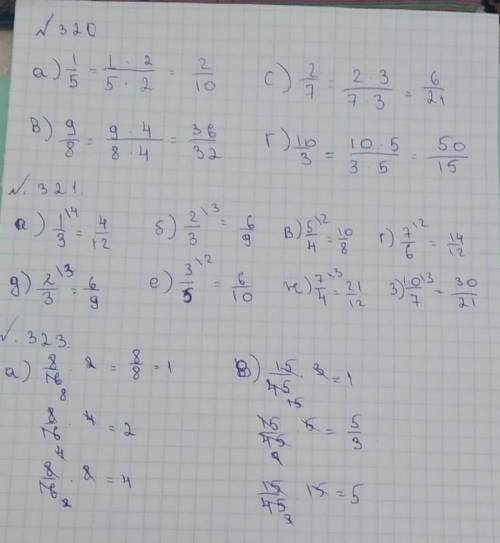 №320
а) 1/5 = 1·2/5·2 = 2/10 с) 2/7 = 2·3/7·3 = 6/21
в) 9/8 = 9·4/8·4 = 36/32 г) 10/3 = 10·5/3·5 = 50/15
№.321.
а) 1/3\4 = 4/12 б) 2/3\3 = 6/9 в) 5/4\2 = 10/8 г) 7/6\2 = 14/12
д) 2/3\3 = 6/9 е) 3/5\2 = 6/10 ж) 7/4\3 = 21/12 з) 10/7\3 = 30/21
№.323.
а) 8/16 8 · 2 = 8/8 = 1 в) 15/45 15 · = 1
/16 · 4 = 2 15/45 = 5/3
8/16 2 · 8 = 4 15/45 3 15 = 5